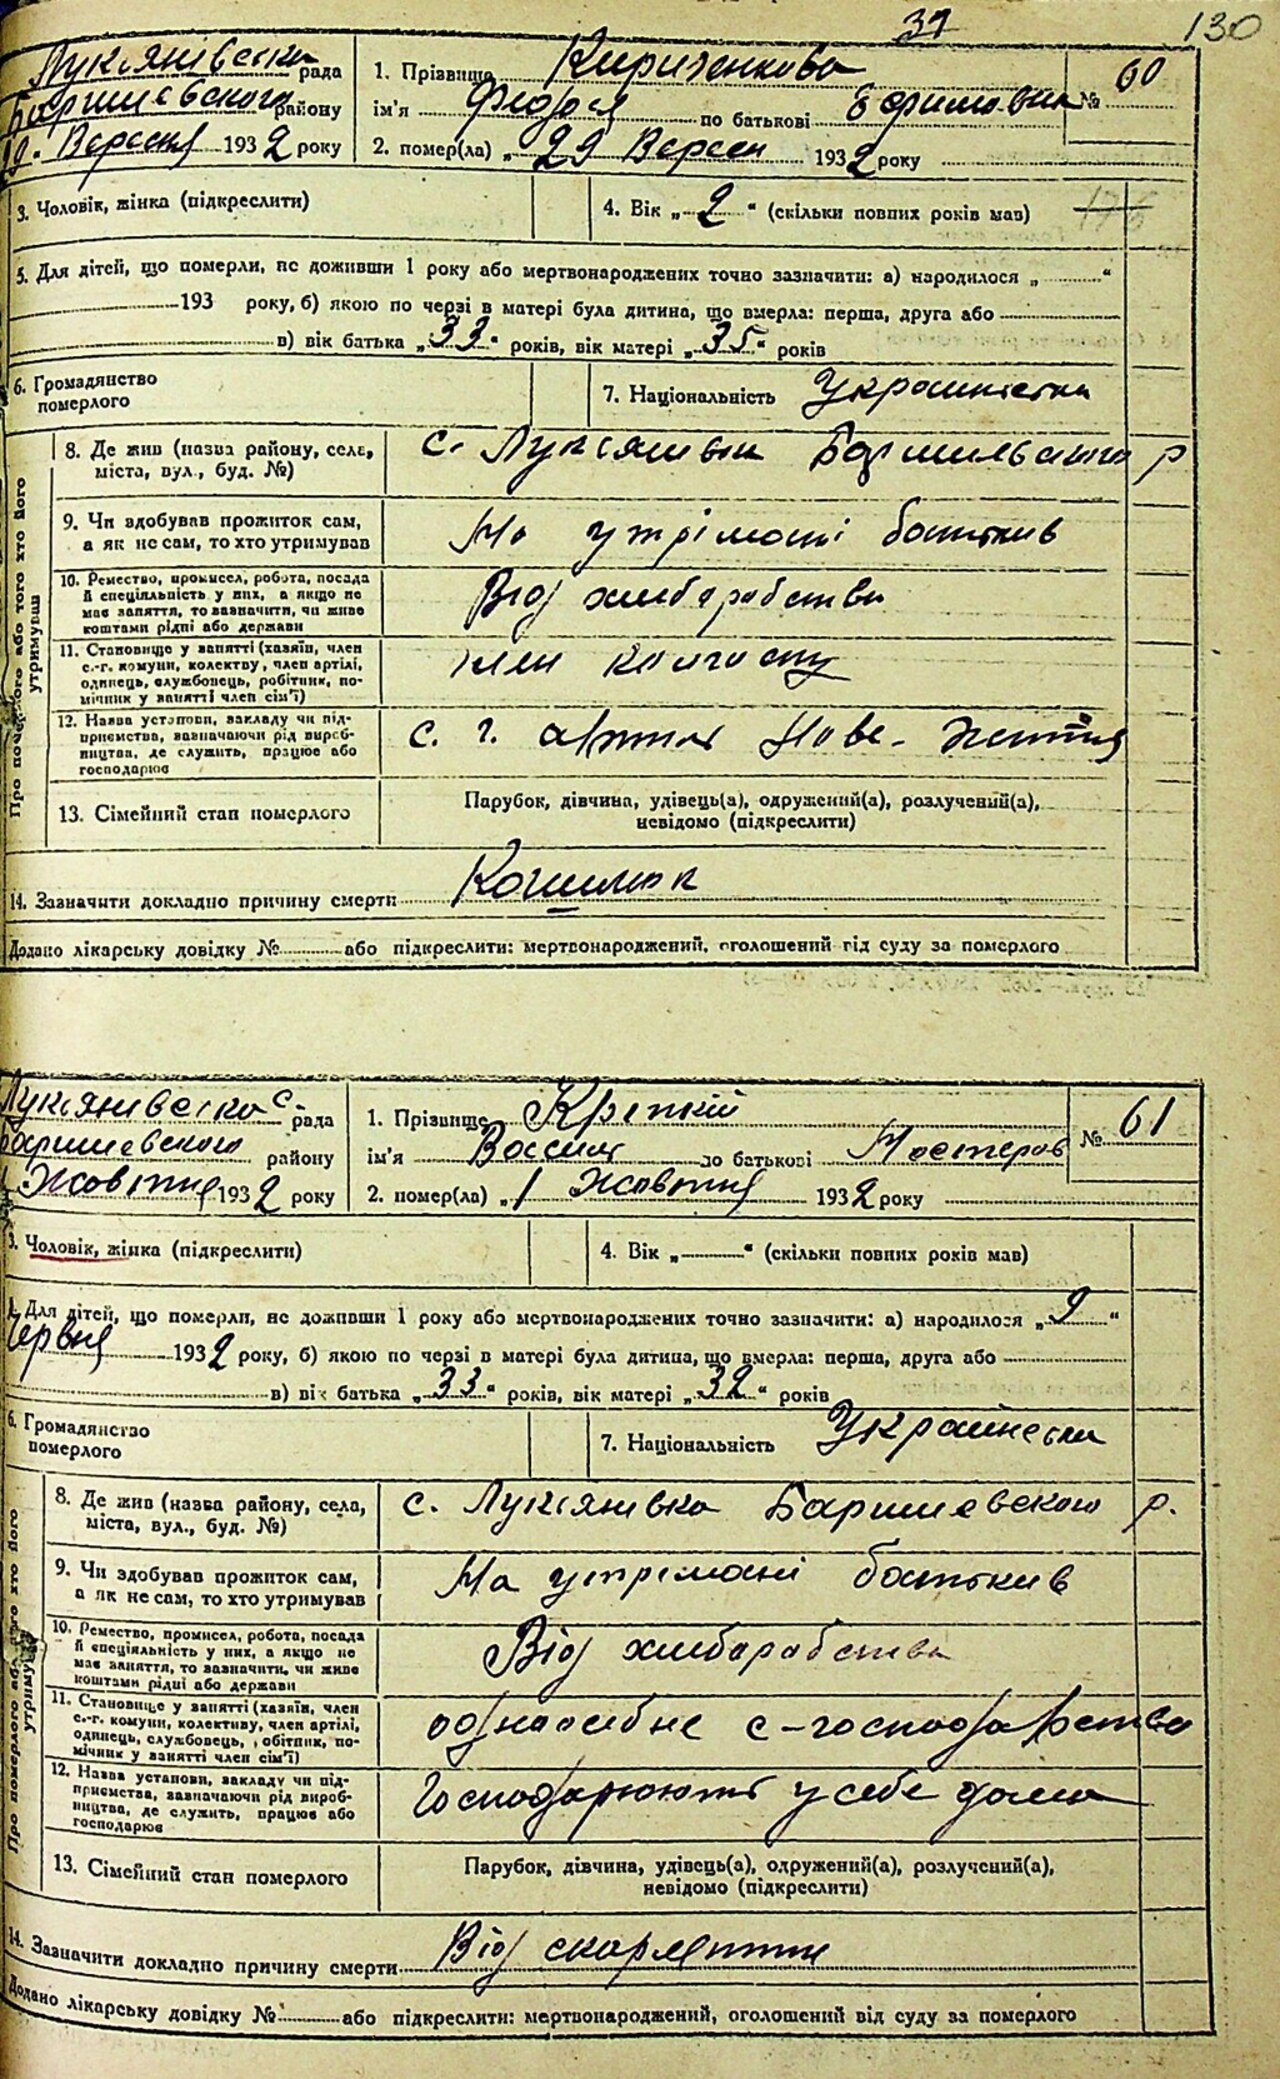 31 130
Лукіянівска рада
Баришевского району
29. Вересня 1932 року
1. Прізвище Кириченкова
ім'я Федося по батькові Ефримовна
2. помер(ла) „ 29 Вересн 1932 року
№ 60
3. Чоловік, жінка (підкреслити)
4. Вік „ 2 " (скільки повних років мав) 176
5. Для дітей, що померли, не доживши 1 року або мертвонароджених точно зазначити: а) народилося „ "
193 року, б) якою по черзі в матері була дитина, що вмерла: перша, друга або
в) вік батька „ 33 " років, вік матері „ 35 " років
6. Громадянство
померлого
7. Національність
8. Де жив (назва району, села,
міста, вул., буд. №)
с. Лукіянівки р
9. Чи здобував прожиток сам,
а як не сам, то хто утримував
На утрімані батьків
10. Ремество, промисел, робота, посада
й спеціяльність у них, а якщо не
має заняття, то зазначити, чи живе
коштами рідні або держави
Від хлібарабства
11. Становище у занятті (хазяїн, член
с.-г. комуни, колективу, член артілі,
одинець, службовець, робітник, по-
мічник у занятті член сім'ї)
член колгоспу
12. Назва установи, закладу чи під-
приємства, зазначаючи рід вироб-
ництва, де служить, працює або
господарює
с. г. артіль Нове - Життя
Про померлого або того хто його
утримував
13. Сімейний стан померлого
Парубок, дівчина, удівець(а), одружений(а), розлучений(а),
невідомо (підкреслити)
14. Зазначити докладно причину смерти Кошлюк
Додано лікарську довідку № або підкреслити: мертвонароджений, оголошений від суду за померлого
Лукіянівска с- рада
Баришевского району
Жовтня 1932 року
1. Прізвище Кріпкій
ім'я Василь по батькові Нестеров
2. помер(ла) „ 1 Жовтня 1932 року
№ 61
3. Чоловік, жінка (підкреслити)
4. Вік „ " (скільки повних років мав)
5. Для дітей, що померли, не доживши 1 року або мертвонароджених точно зазначити: а) народилося „ 9 "
Червня 1932 року, б) якою по черзі в матері була дитина, що вмерла: перша, друга або
в) вік батька „ 33 " років, вік матері „ 32 " років
6. Громадянство
померлого
7. Національність Украйнська
8. Де жив (назва району, села,
міста, вул., буд. №)
с. Лукіянівка Баришевского р.
9. Чи здобував прожиток сам,
а як не сам, то хто утримував
На утрімані батьків
10. Ремество, промисел, робота, посада
й спеціяльність у них, а якщо не
має заняття, то зазначити, чи живе
коштами рідні або держави
Від хлібарабства
11. Становище у занятті (хазяїн, член
с.-г. комуни, колективу, член артілі,
одинець, службовець, робітник, по-
мічник у занятті член сім'ї)
однаосібне с-господарства
12. Назва установи, закладу чи під-
приємства, зазначаючи рід вироб-
ництва, де служить, працює або
господарює
Господарюють у себе дома
Про померлого або того хто його
утримував
13. Сімейний стан померлого
Парубок, дівчина, удівець(а), одружений(а), розлучений(а),
невідомо (підкреслити)
14. Зазначити докладно причину смерти Від скарлятини
Додано лікарську довідку № або підкреслити: мертвонароджений, оголошений від суду за померлого